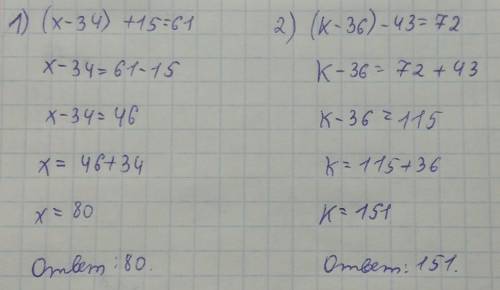 1) (x-34) +15=61
x-34=61-15
x-34=46
x= 46+34
x=80
Ответ: 80.
2) (К-36)-43=72
К-36=72+43
К-36=115
К=115+36
К=151
Ответ: 151.